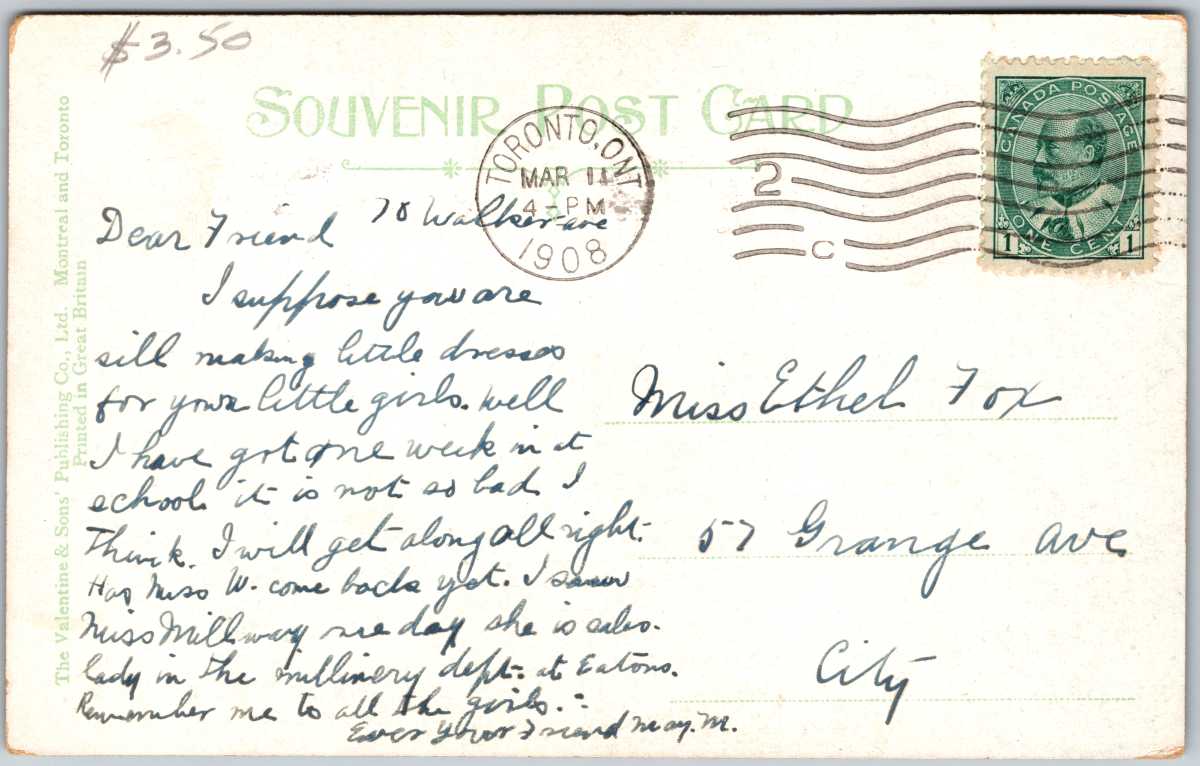 $3.50
SOUVENIR POST CARD
The Valentine & Sons' Publishing Co., Ltd. Montreal and Toronto
Printed in Great Britain
TORONTO, ONT
MAR 11
4-PM
1908
2
C
CANADA POSTAGE
1 ONE CENT 1
78 Walker ave
Dear Friend
I suppose you are
sill making little dresses
for your little girls. Well
I have got one week in at
school it is not so bad I
Think. I will get along all right.
Has Miss W. come back yet. I saw
Miss Millway one day she is sales-
lady in the millinery dept. at Eatons.
Remember me to all the girls.
Ever Your Friend May. M.
Miss Ethel Fox
57 Grange Ave
City